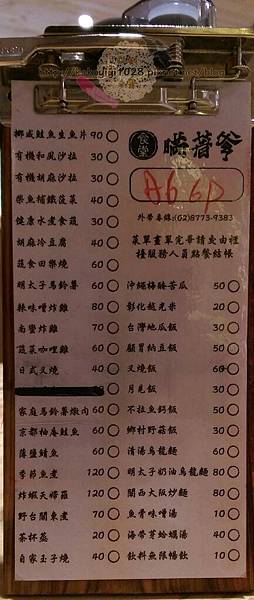 食堂
A6 6P
外帶專線:(02)8773-9383
菜單畫單完畢請交由裡
檯服務人員點餐結帳
挪威鮭魚生魚片 90
有機和風沙拉 30
有機胡麻沙拉 30
柴魚補鐵菠菜 40
健康水煮食蔬 30
胡麻冷豆腐 40
蔬食田樂燒 60
明太子馬鈴薯 60
辣味噌炸雞 80
南蠻炸雞 70
蔬菜咖哩雞 60
日式叉燒 40
家庭馬鈴薯燉肉 60
京都柚香鮭魚 60
薄鹽鯖魚 60
季節魚煮 120
炸蝦天婦羅 120
野台關東煮 70
茶杯蒸 20
自家玉子燒 40
沖繩梅醃苦瓜 50
彰化越光米 20
台灣地瓜飯 30
顧胃納豆飯 50
叉燒飯 60
月見飯 30
不拉魚鈣飯 50
鄉村野菇飯 30
清湯烏龍麵 60
明太子奶油烏龍麵 80
關西大阪炒麵 80
魚骨味噌湯 10
海帶芽蛤蠣湯 40
飲料無限暢飲 10